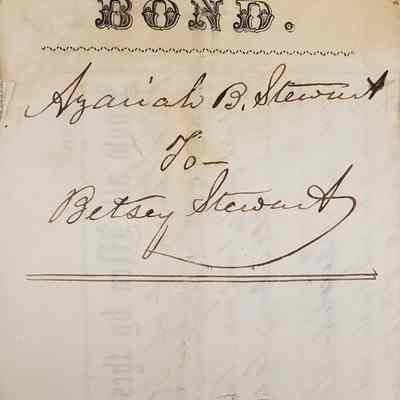 BOND.
Azariah B. Stewart
To—
Betsey Stewart